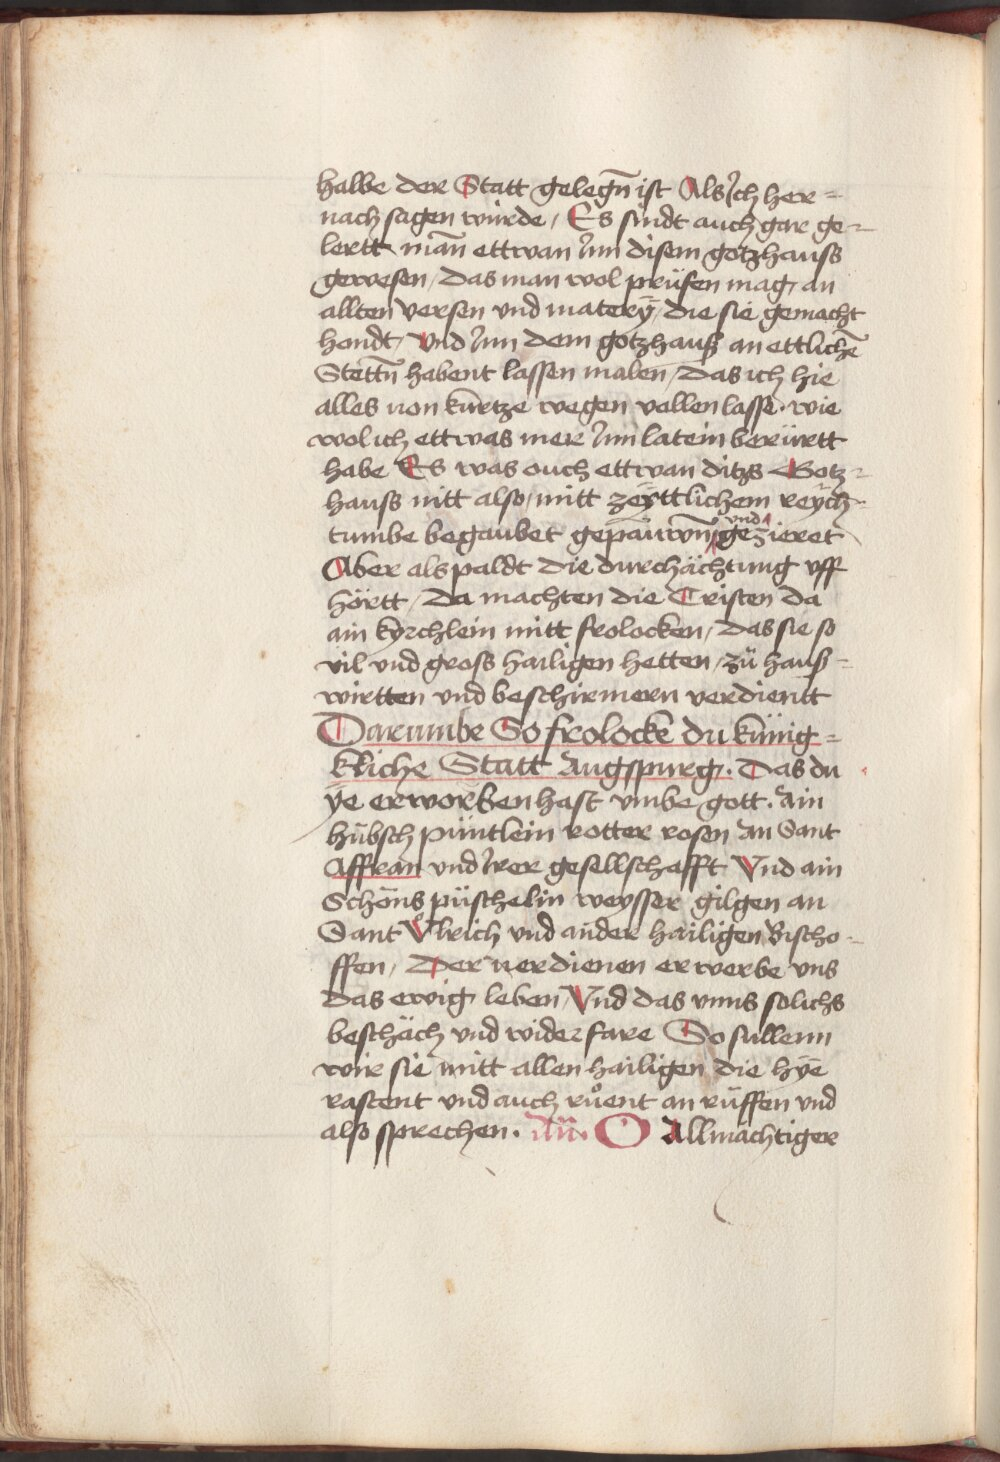 halbe der Statt gelegn̄ ist Als Ich her=
nach sagen würde / Es sindt auch gar ge=
lertt man̄ ettwan Inn disem gotzhauss
gewesen / das man wol prüfen mag an
allten versen vnd matery̆ / die sie gemacht
hendt / Vnd Inn dem gotzhauß an ettlichē
Stettn̄ habent lassen malen / das ich hie
alles von kürtze wegen vallen lasse · wie
wol ich ettwas mer Inn latein berürtt
habe Es was ouch ettwan ditzs Gotz=
hauss nitt also / mitt zeÿttlichem reÿch
tumbe begaubet gepauwn̄ vnd gezieret
Aber als paldt die durchächtung vff
hörtt / Da machten die Cristen da
ain kyrchlein mitt frolocken / das sie so
vil vnd gross hailigen hetten / zü hauß=
wirtten vnd beschirmern verdientt
Darumbe So frolocke du künig=
kliche Statt Augspurg. Das du
ÿe erworben hast vmbe gott. Ain
hübsch püntlein rotter rosen an Sant
Affran vnd Irer gesellschafft Vnd ain
Schöns püschelin weysser gilgen an
Sant Vͦlrich vnd ander hailigen Bischo=
ffen / Der verdienen erwerbe vns
das ewig leben / Vnd das vnns solichs
beschäch vnd wider fare So sullenn
wir sie mitt allen hailigen die hÿe
rastent vnd auch růent an rüffen vnd
also sprechen. O Allmächtiger